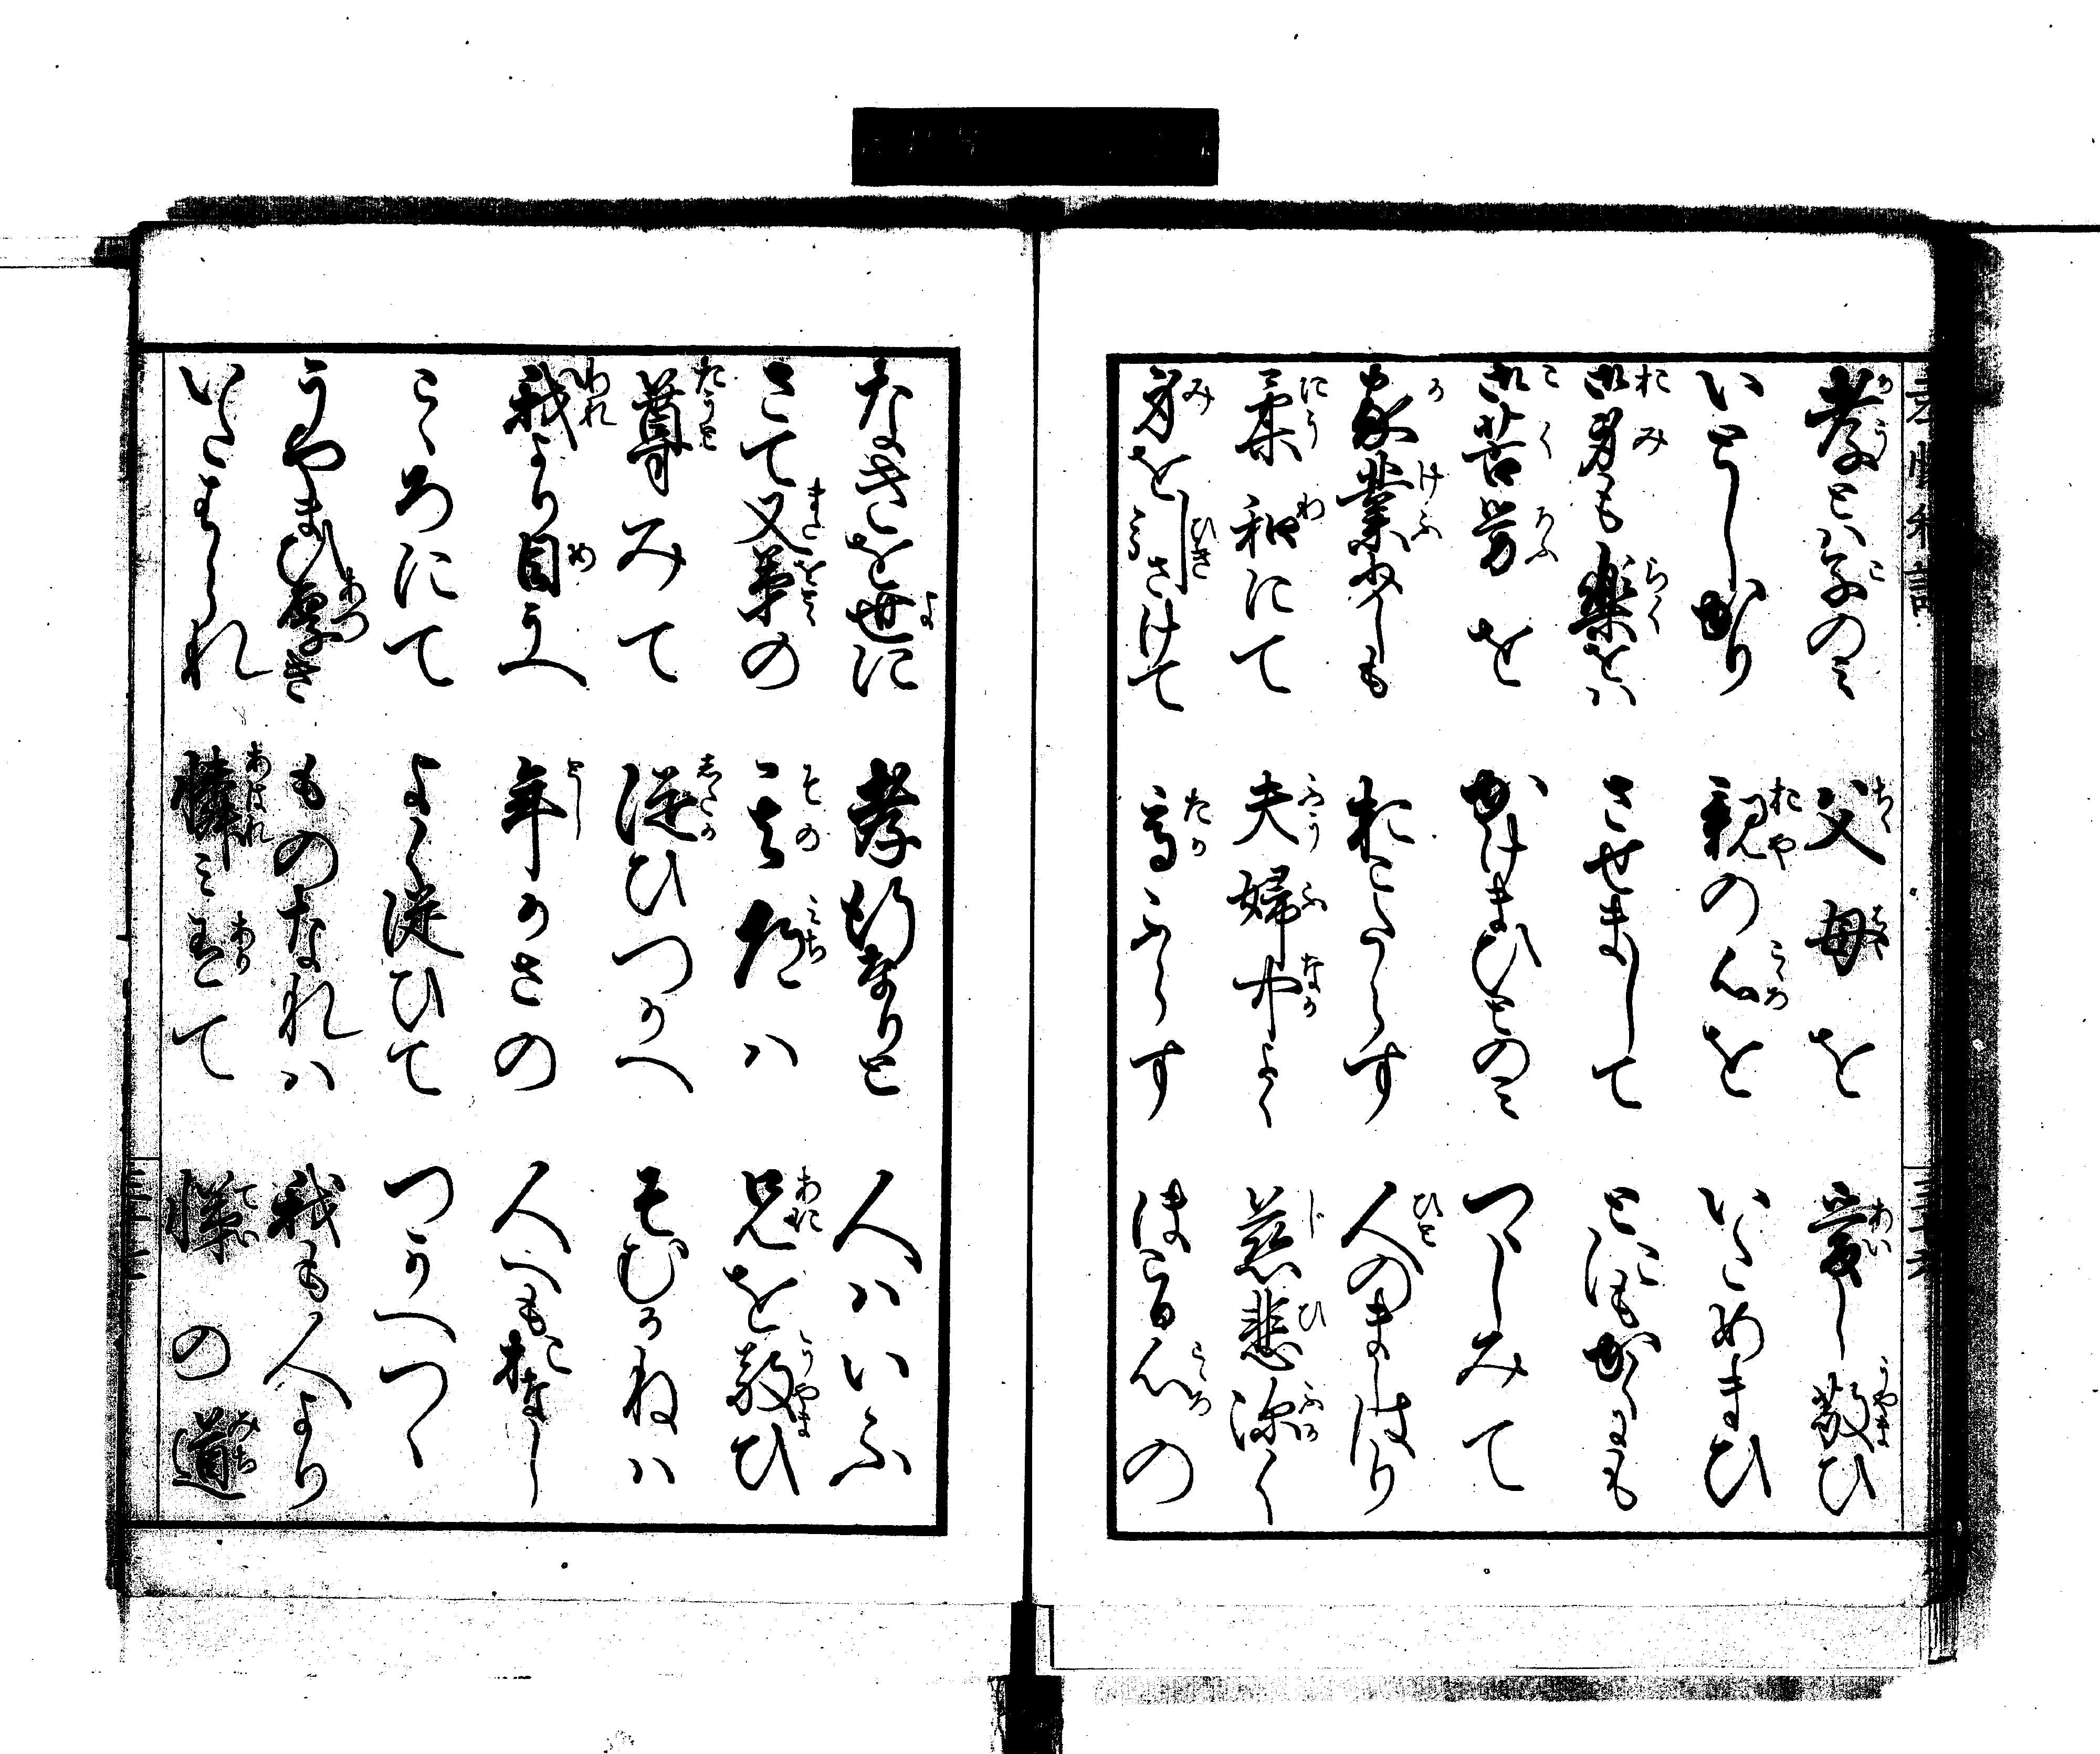 孝とハ子のミ　父母を　愛し敬ひ
いとしかり　親の心を　いためまひ
御身も楽をハ　させまして　とにもかくにも
御苦労を　かけまひとのミ　つゝしみて
家業少しも　おこたらす　人のましはり
柔和にて　夫婦中よく　慈悲深く
身を引さけて　高ふらす　まこと心の
なきを世に　孝行なりと　人ハいふ
さて又弟の　其道ハ　兄を敬ひ
尊みて　従ひつかへ　そむかねハ
我より目うへ　年かさの　人へもおなし
こゝろにて　よく従ひて　つかへつゝ
うやまひ厚き　ものなれハ　我も人より
いたはられ　憐ミ有て　悌の道